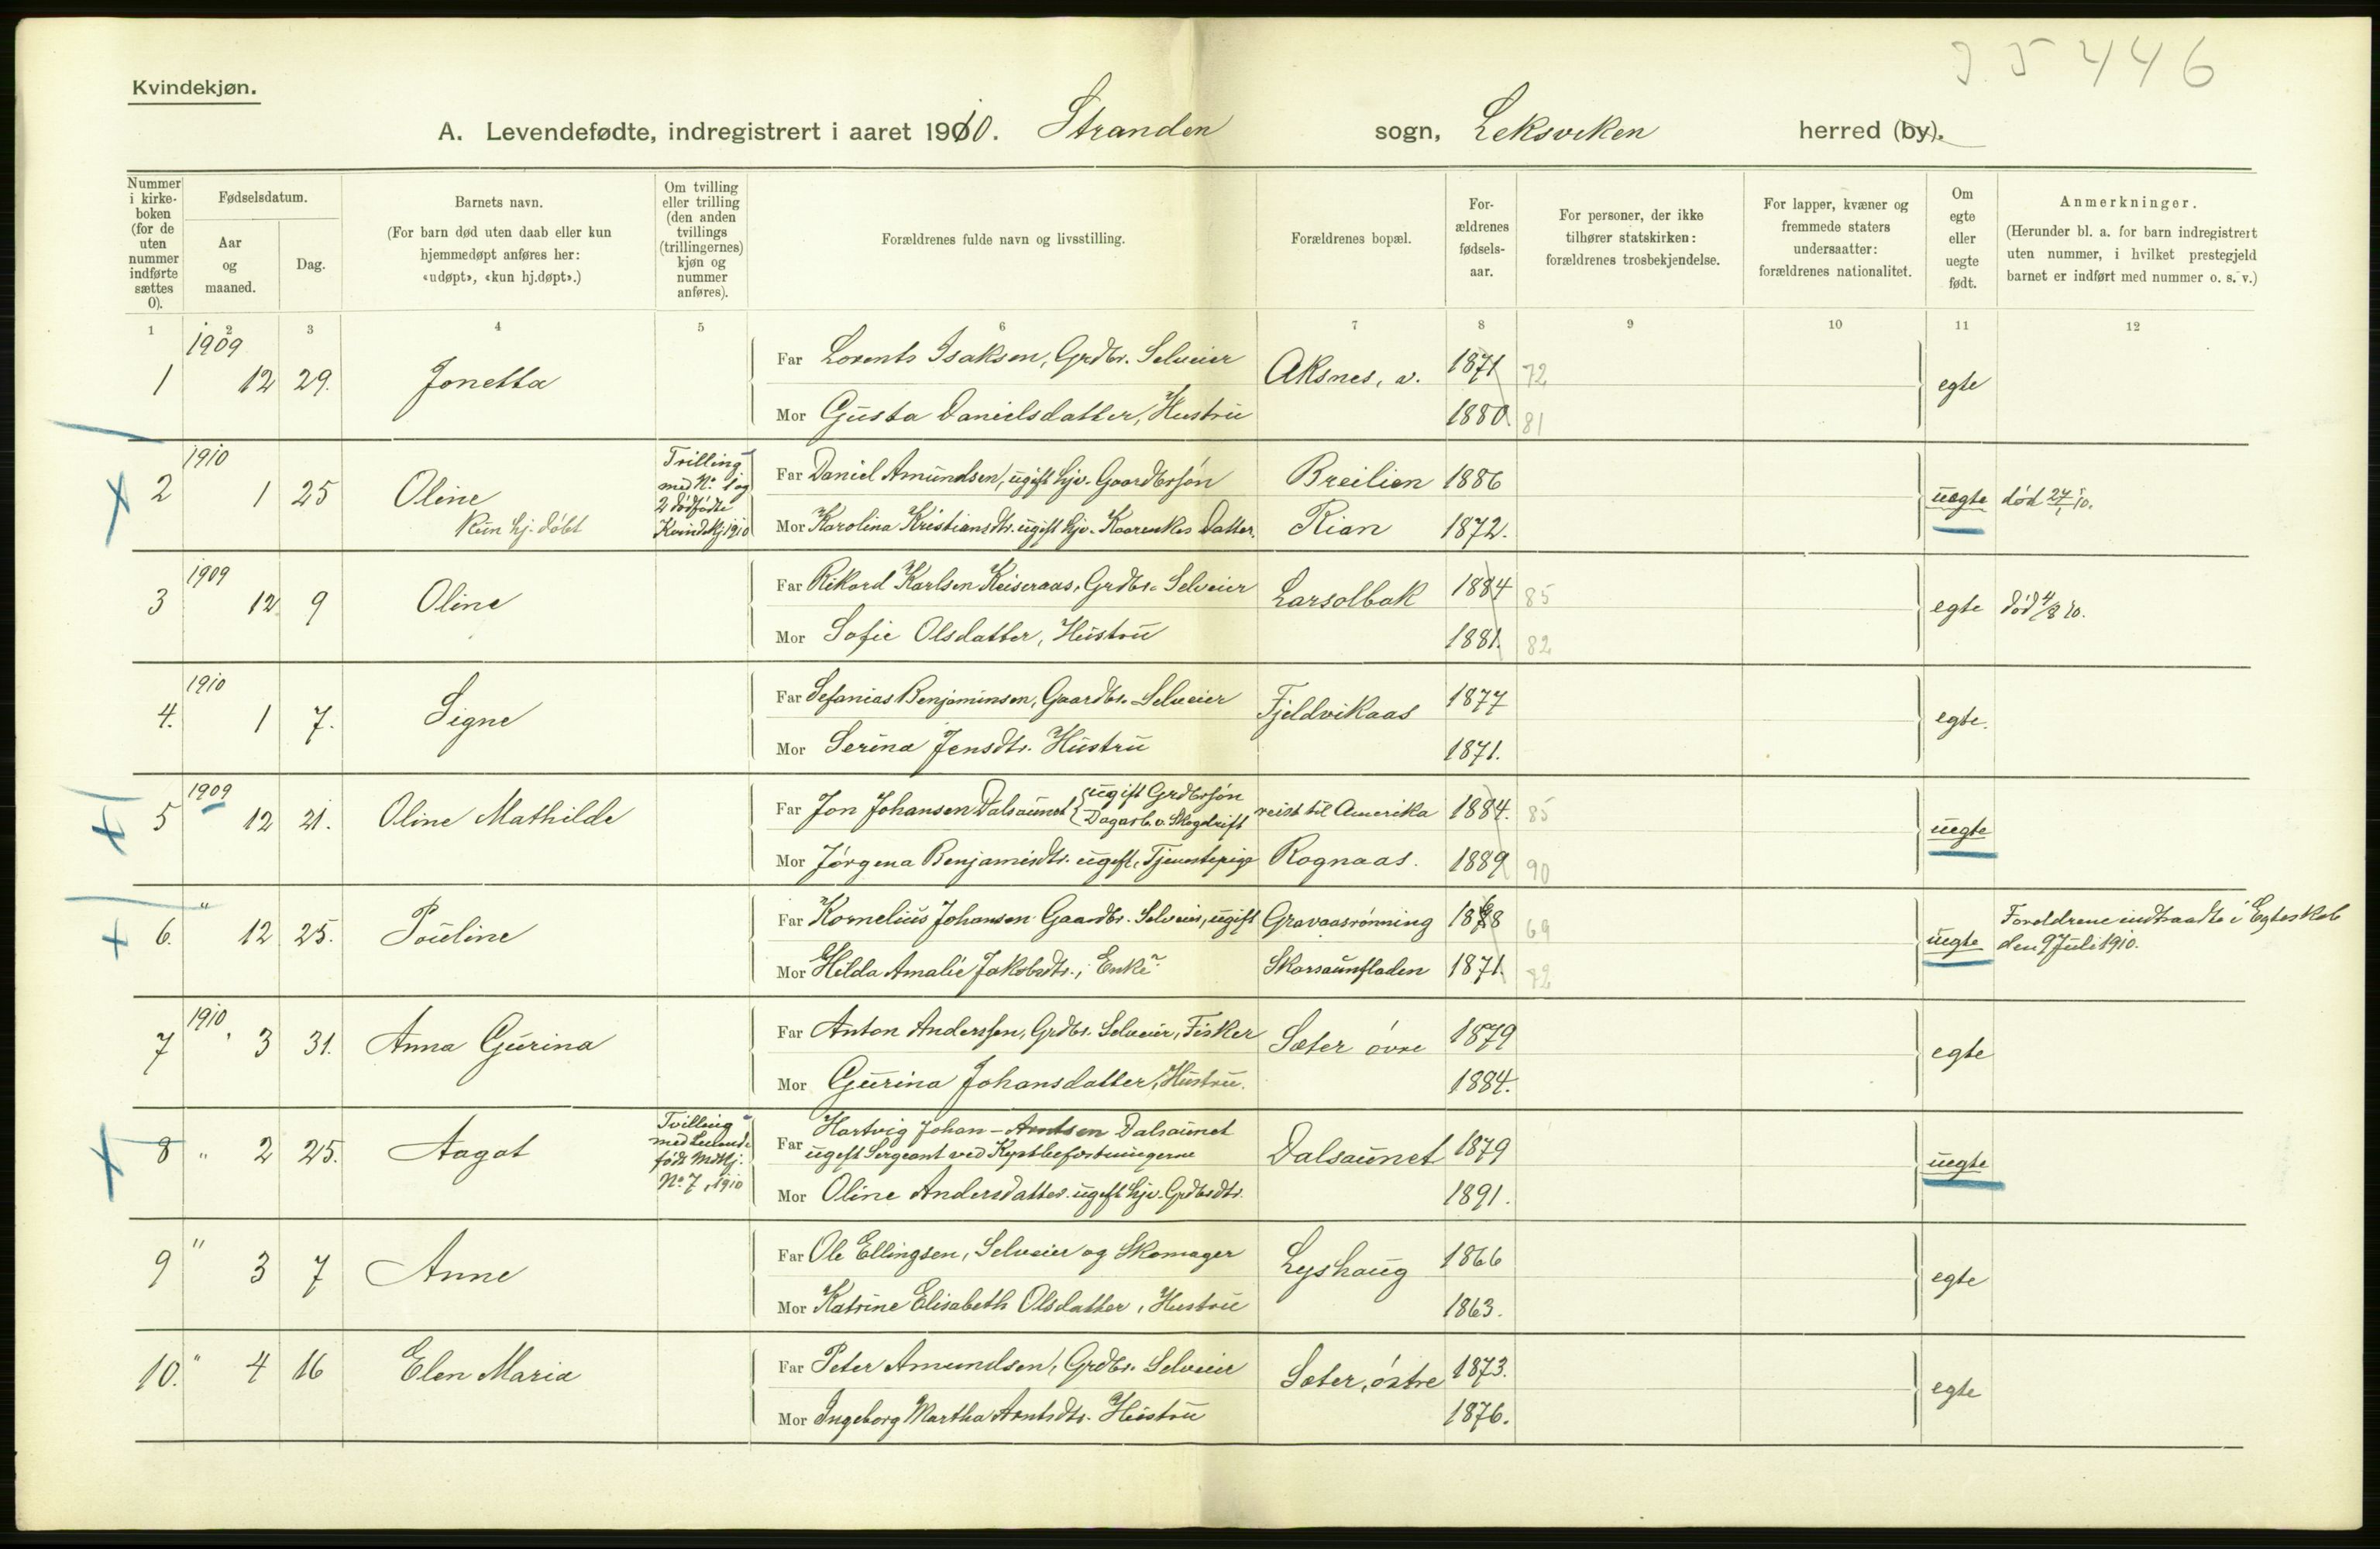 J. 5 446
Kvindekjøn.
A. Levendefødte, indregistrert i aaret 1910. Stranden sogn, Leksviken herred (by).
Nummer i kirke-boken (for de uten nummer indførte sættes 0).
Fødselsdatum.
Aar og maaned.
Dag.
Barnets navn.
(For barn død uten daab eller kun hjemmedøpt anføres her: «udøpt», «kun hj.døpt».)
Om tvilling eller trilling (den anden tvillings (trillingernes) kjøn og nummer anføres).
Forældrenes fulde navn og livsstilling.
Forældrenes bopæl.
For-ældrenes fødsels-aar.
For personer, der ikke tilhører statskirken: forældrenes trosbekjendelse.
For lapper, kvæner og fremmede staters undersaatter: forældrenes nationalitet.
Om egte eller uegte født.
Anmerkninger.
(Herunder bl. a. for barn indregistrert uten nummer, i hvilket prestegjeld barnet er indført med nummer o. s. v.)
1 2 3 4 5 6 7 8 9 10 11 12
1909
1 12 29. Jonetta Far Lorents Isaksen, Grdbr. Selveier Aksnes, v. 1871 72 egte
Mor Gusta Danielsdatter, Hustru 1880 81
1910
2 1 25 Oline Kun hj. døbt
Trilling med No. 1 og 2 dødfødte Kvindkj 1910
Far Daniel Amundsen, ugift hjv. Gaardbrsøn Breilien 1886 uegte død 27/1 10.
Mor Karolina Kristiansdtr. ugift hjv. Kaarenkes Datter. Rian 1872.
1909
3 12 9 Oline Far Rikard Karlsen Keiseraas, Grdbr. Selveier Larsolbak 1884 85 egte død 4/8 10.
Mor Sofie Olsdatter, Hustru 1881. 82
1910
4. 1 7. Signe Far Sefanias Benjaminsen, Gaardbr. Selveier Fjeldvikaas 1877 egte.
Mor Serina Jensdtr. Hustru 1871.
1909
5 12 21. Oline Mathilde Far Jon Johansen Dalsaunet { ugift Grdbrsøn Dagarb. v. Skogdrift reist til Amerika 1884. 85 uegte
Mor Jørgena Benjamindtr. ugift, Tjenstepige Rognaas. 1889 90
6. " 12 25. Pouline Far Kornelius Johansen Gaardbr. Selveier, ugift Gravaasrønning 1868 69 uegte Forældrene indtraadte i Egteskab den 9 Juli 1910.
Mor Hilda Amalie Jakobsdtr., Enke Skarsaunfladen 1871. 72
1910
7 3 31. Anna Gurina Far Anton Anderssen, Grdbr. Selveier, Fisker Sæter øvre 1879 egte
Mor Gurina Johansdatter, Hustru. 1884.
8 " 2 25. Aagot
Tvilling med Levende født Mdkj. No. 7, 1910
Far Hartvig Johan Arntsen Dalsaunet ugift Sergeant ved Kystbefæstningerne Dalsaunet 1879 uegte
Mor Oline Andersdatter ugift hjv. Grdbrdtr. 1891.
9 " 3 7 Anne Far Ole Ellingsen, Selveier og Skomager Lyshaug 1866 egte
Mor Katrine Elisabeth Olsdatter, Hustru 1863.
10. " 4 16 Elen Maria Far Peter Amundsen, Grdbr. Selveier Sæter, østre 1873. egte
Mor Ingeborg Martha Arntsdtr. Hustru 1876.